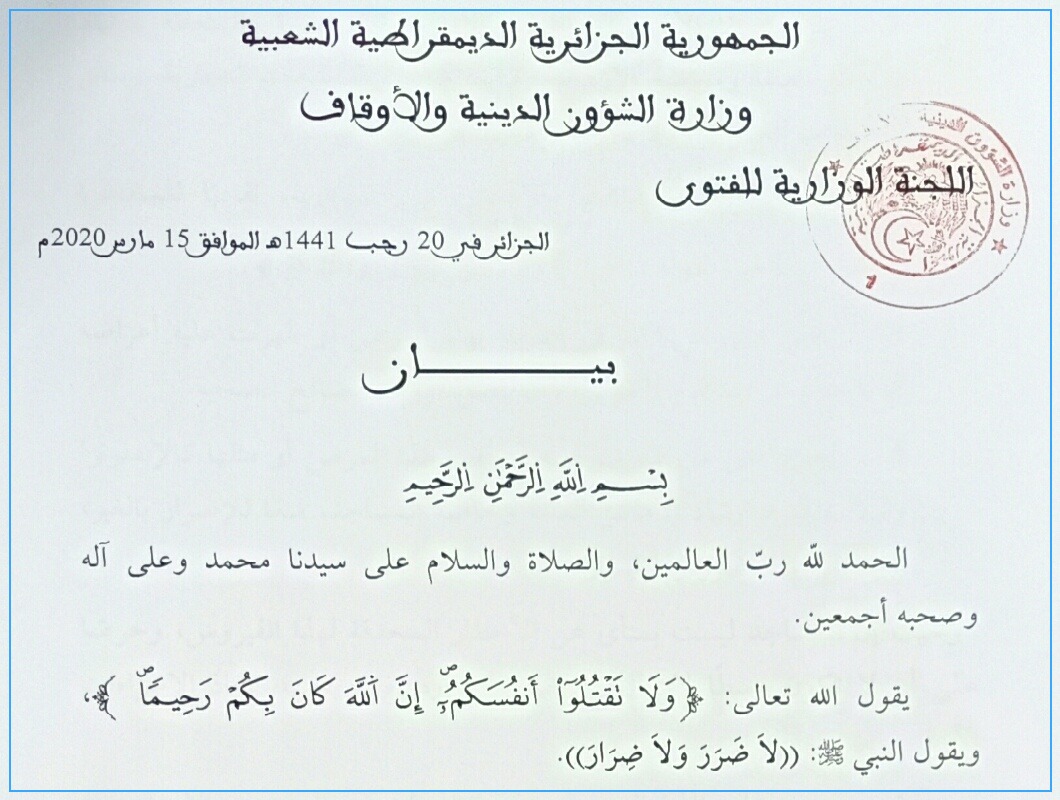 الجمهورية الجزائرية الديمقراطية الشعبية
وزارة الشؤون الدينية والأوقاف
اللجنة الوزارية للفتوى
الجزائر في 20 رجب 1441هـ الموافق 15 مارس 2020م
بيــــــــــان
بِسْمِ اِللَّهِ اِلرَّحْمَٰنِ اِلرَّحِيمِ
الحمد لله ربّ العالمين، والصلاة والسلام على سيدنا محمد وعلى آله
وصحبه أجمعين.
يقول الله تعالى: ﴿وَلَا تَقْتُلُوٓاْ أَنفُسَكُمُۥٓ إِنَّ اَللَّهَ كَانَ بِكُمْ رَحِيمًا﴾،
ويقول النبي ﷺ: ((لاَ ضَرَرَ وَلاَ ضِرَارَ)).